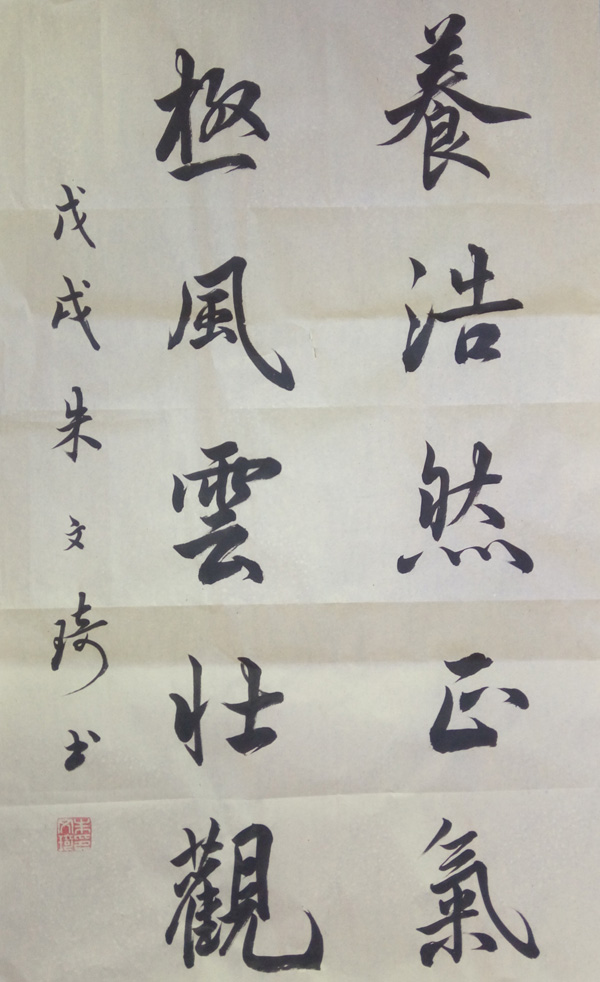 養浩然正氣
極風雲壯觀
戊戌朱文琦书